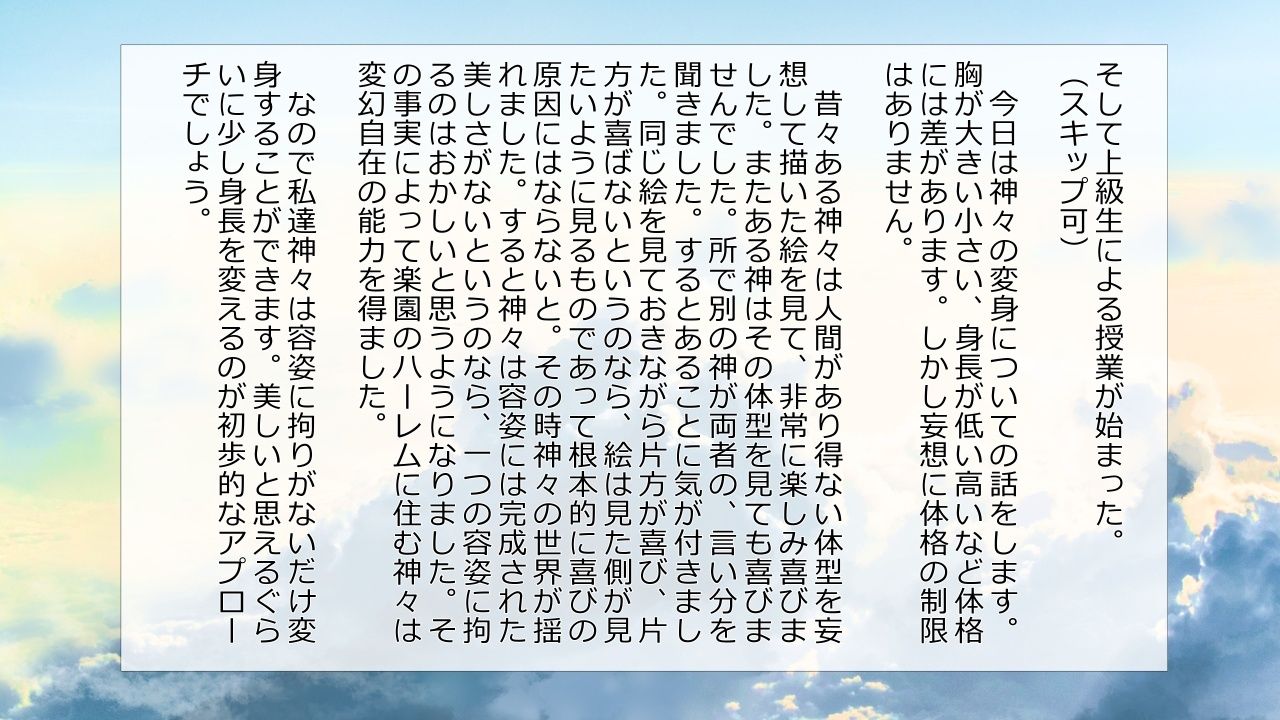 そして上級生による授業が始まった。
（スキップ可）
　今日は神々の変身についての話をします。
胸が大きい小さい、身長が低い高いなど体格
には差があります。しかし妄想に体格の制限
はありません。
　昔々ある神々は人間があり得ない体型を妄
想して描いた絵を見て、非常に楽しみ喜びま
した。またある神はその体型を見ても喜びま
せんでした。所で別の神が両者の、言い分を
聞きました。するとあることに気が付きまし
た。同じ絵を見ておきながら片方が喜び、片
方が喜ばないというのなら、絵は見た側が見
たいように見るものであって根本的に喜びの
原因にはならないと。その時神々の世界が揺
れました。すると神々は容姿には完成された
美しさがないというのなら、一つの容姿に拘
るのはおかしいと思うようになりました。そ
の事実によって楽園のハーレムに住む神々は
変幻自在の能力を得ました。
　なので私達神々は容姿に拘りがないだけ変
身することができます。美しいと思えるぐら
いに少し身長を変えるのが初歩的なアプロー
チでしょう。